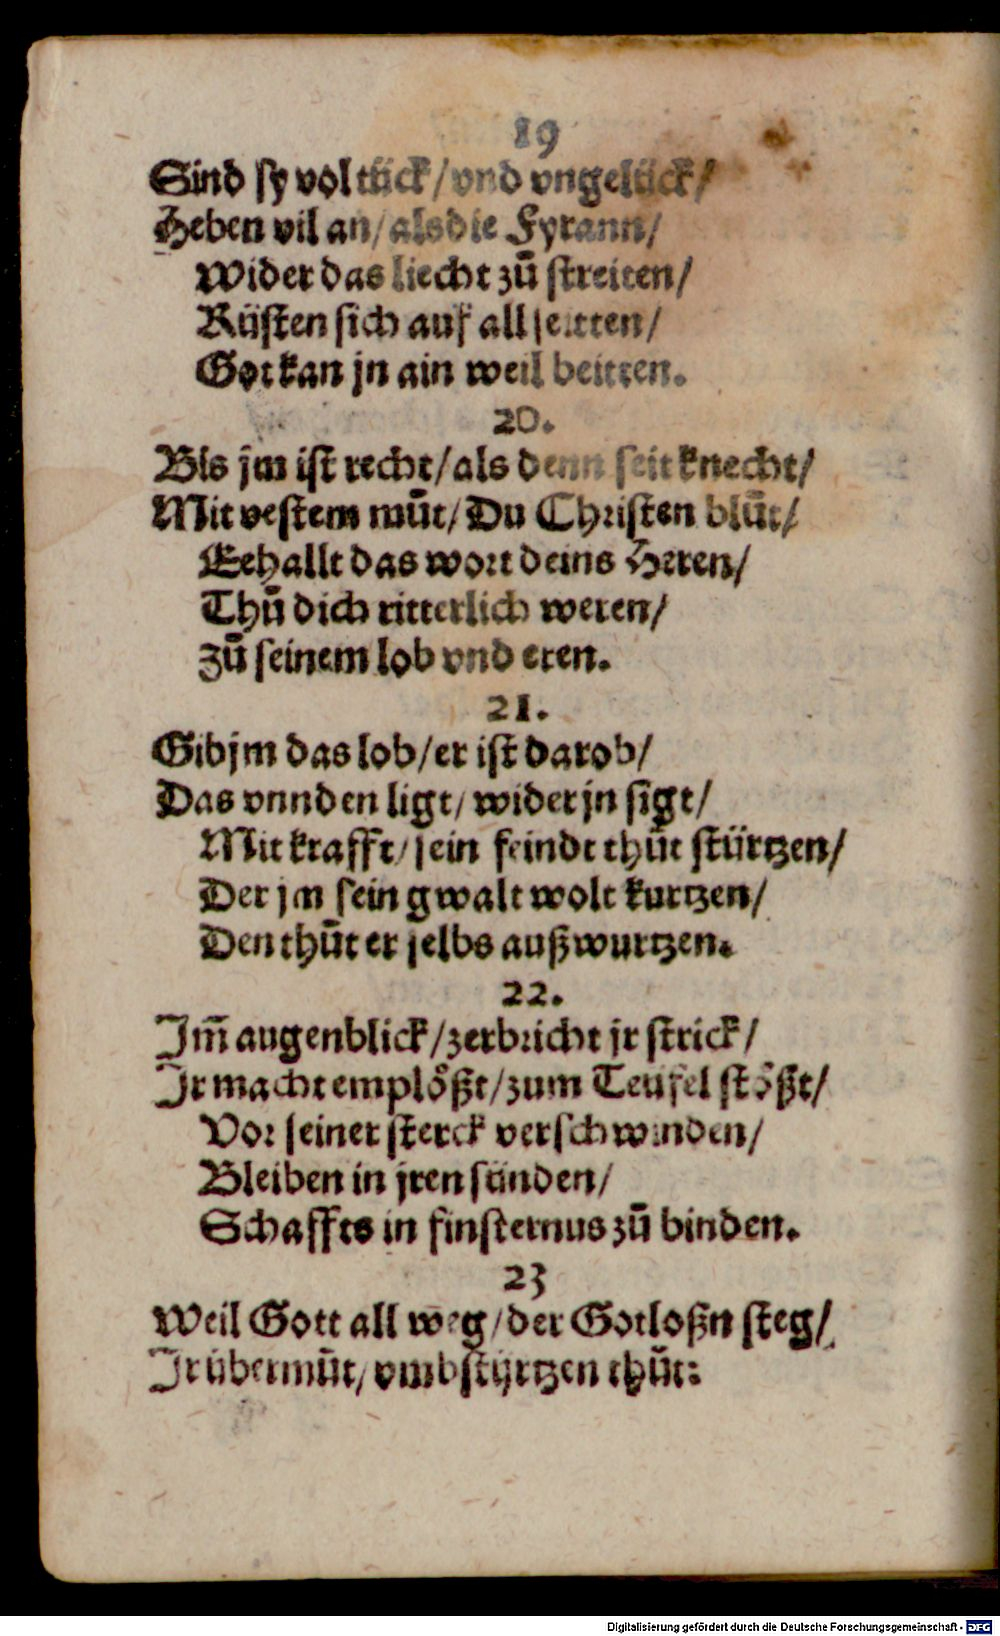 19
Sind sy vol tück/vnd vngelück/
Heben vil an/als die Tyrann/
Wider das liecht zů streiten/
Rüsten sich auf all seitten/
Got kan jn ain weil beitten.
20.
Bis jm ist recht/als denn seit knecht/
Mit vestem můt/Du Christen blůt/
Behallt das wort deins Heren/
Thů dich ritterlich weren/
Zů seinem lob vnd eren.
21.
Gib jm das lob/er ist darob/
Das vnnden ligt/wider jn sigt/
Mit krafft/sein feindt thůt stürtzen/
Der jm sein gwalt wolt kurtzen/
Den thůt er selbs außwurtzen.
22.
Im̃ augenblick/zerbricht jr strick/
Ir macht emplößt/zum Teufel stößt/
Vor seiner sterck verschwinden/
Bleiben in jren sünden/
Schaffts in finsternus zů binden.
23
Weil Gott all weg/der Gotloßn steg/
Ir übermůt/vmbstürtzen thůt:
Digitalisierung gefördert durch die Deutsche Forschungsgemeinschaft - DFG